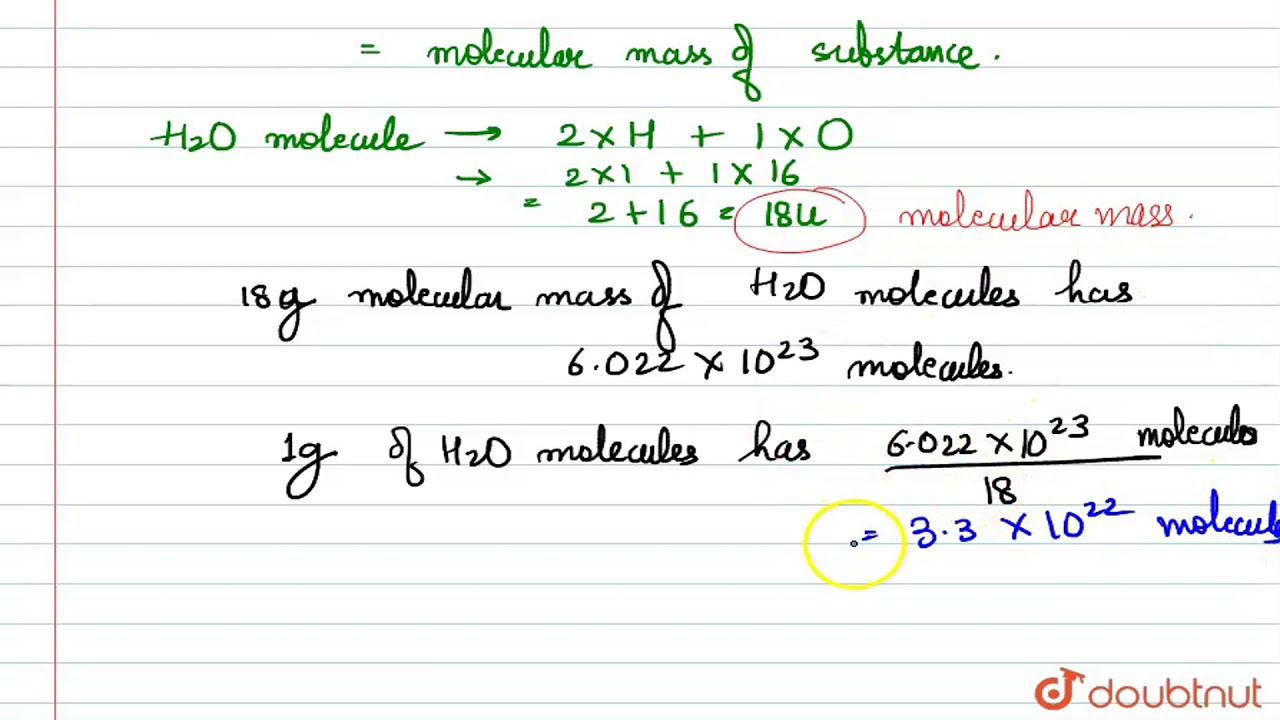 = molecular mass of substance.
H2O molecule → 2×H + 1×O
→ 2×1 + 1×16
= 2+16 = 18u molecular mass.
18g molecular mass of H2O molecules has
6.022 × 10^23 molecules.
1g of H2O molecules has 6.022×10^23 molecules
18
= 3.3 × 10^22 molecule
doubtnut